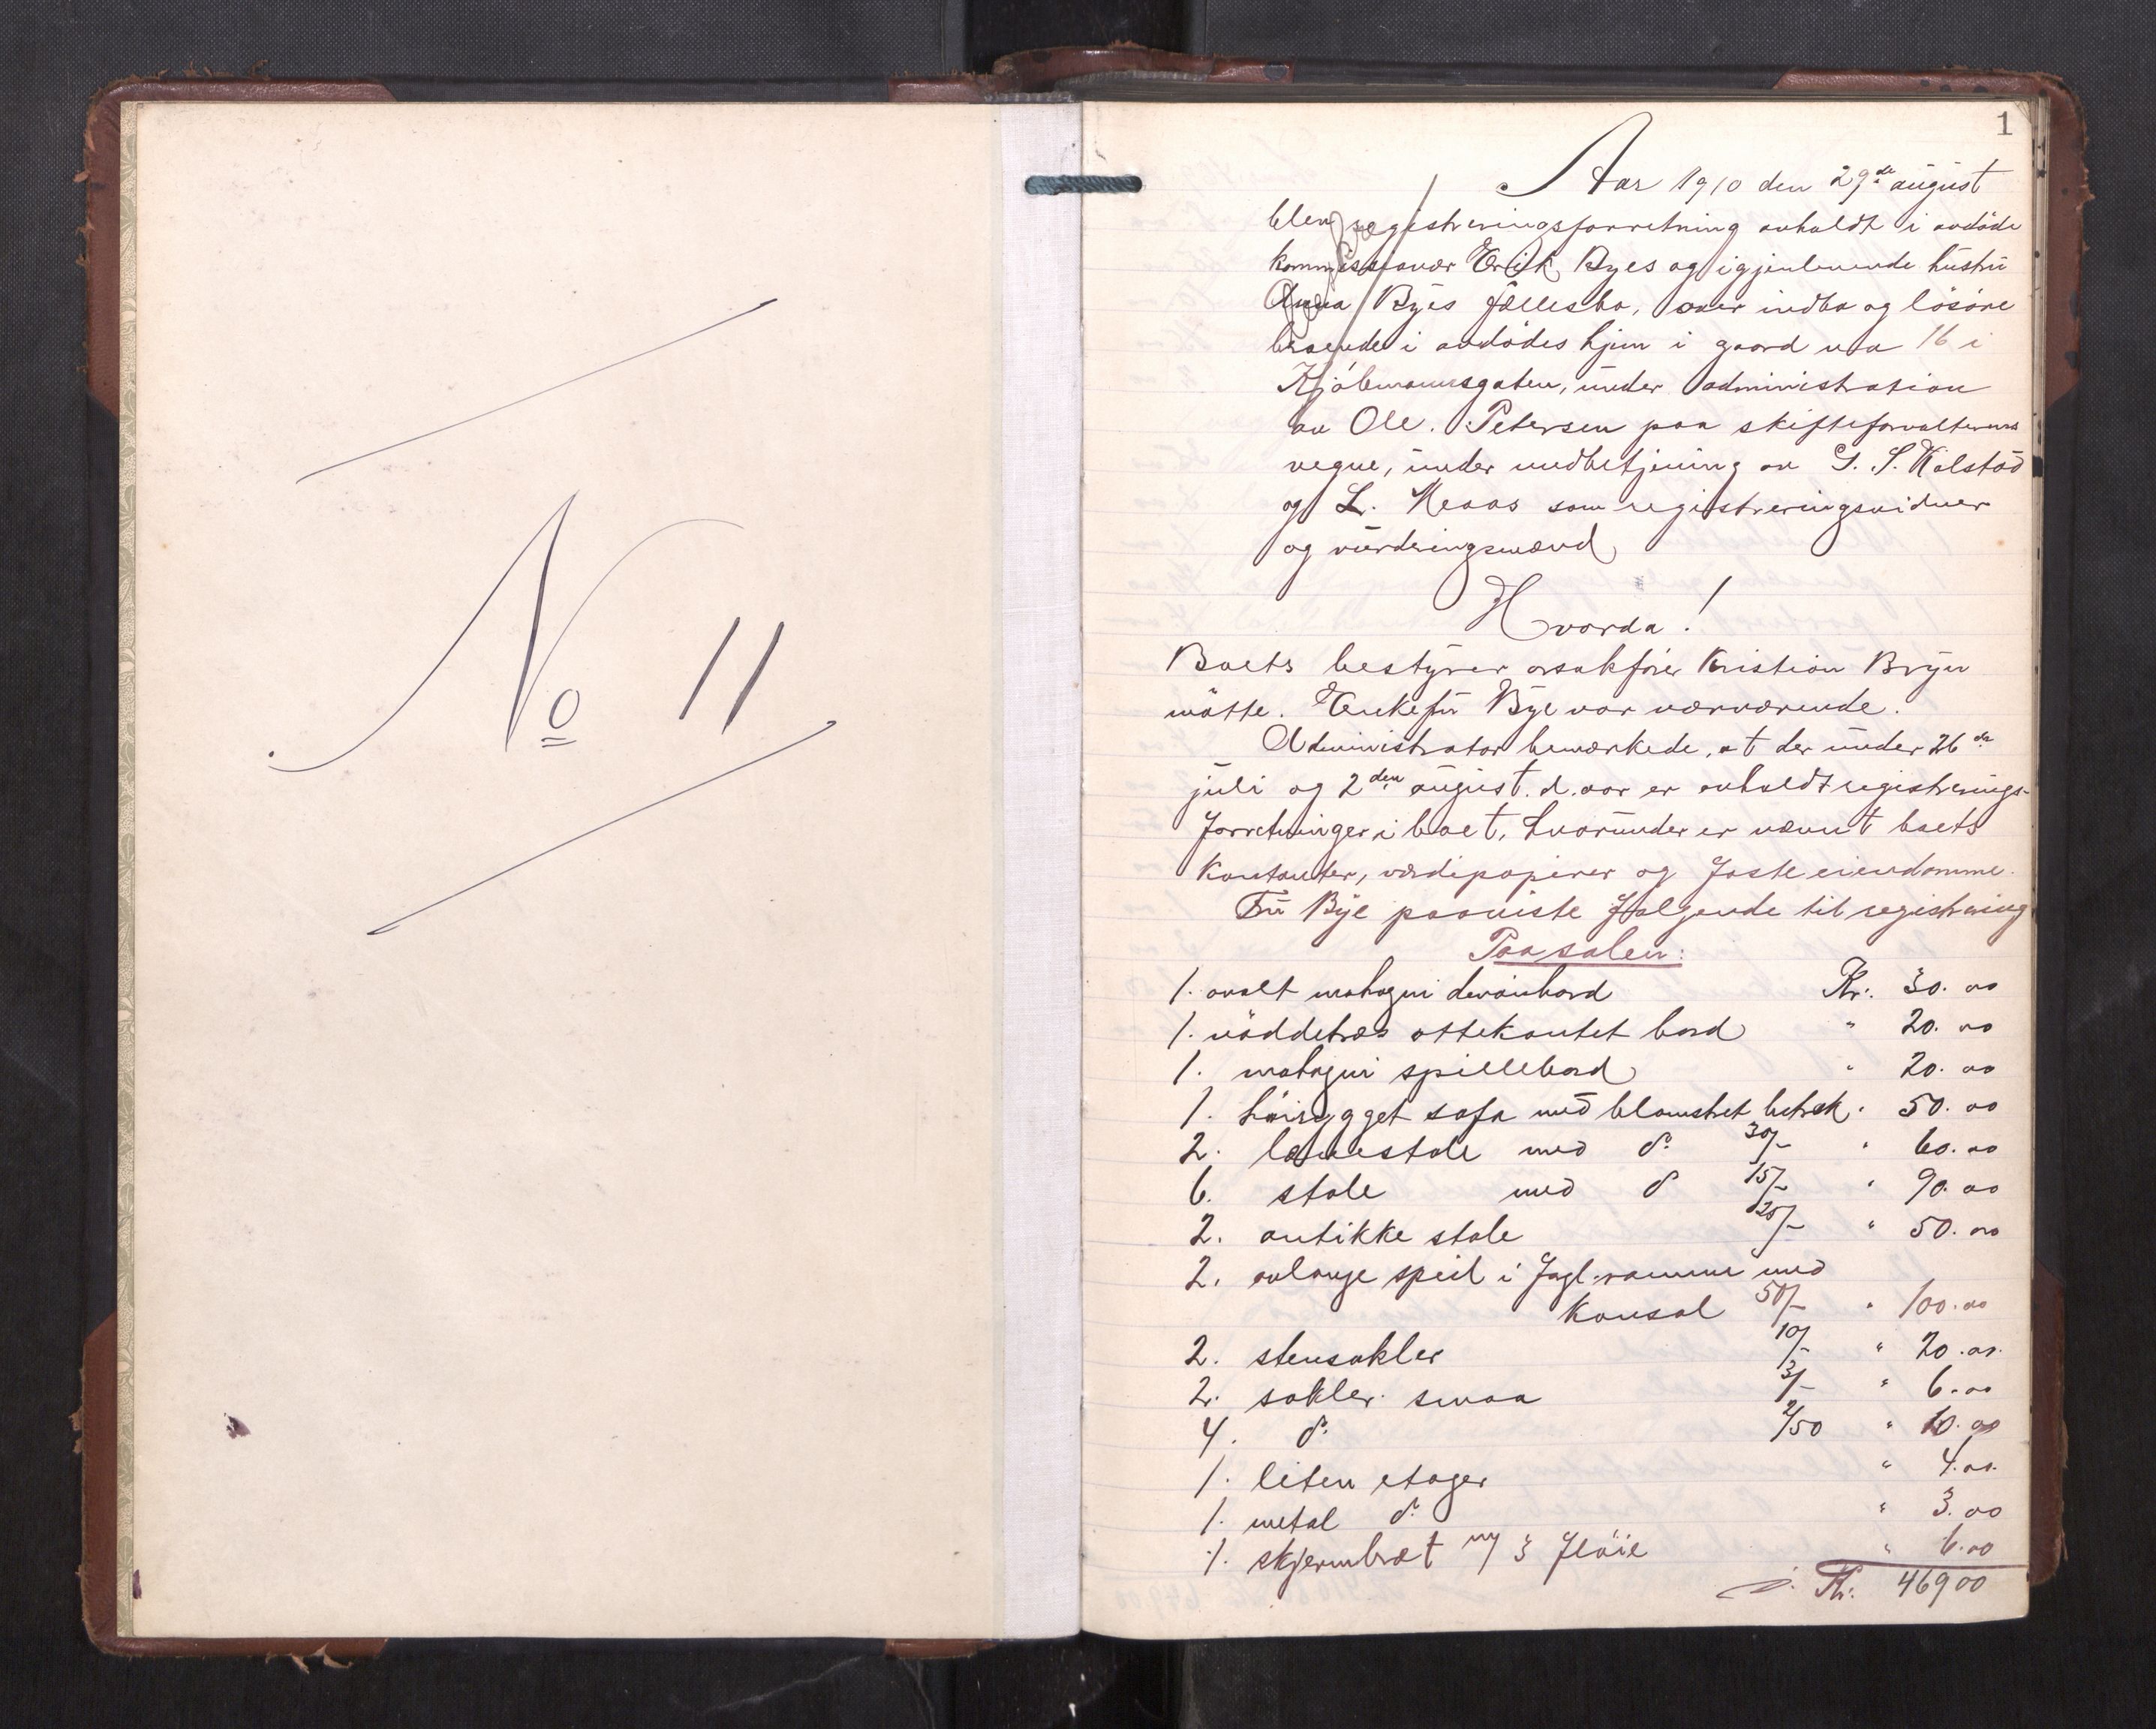 No 11
1
Aar 1910 den 29de august
blev registreringsforretning avholdt i avdöde
kommissionær Erik Byes og igjenlevende hustru
Anna Byes fællesbo, over indbo og lösöre
beroende i avdödes hjem i gaard no 16 i
Kjöbmannsgaten, under administration
av Ole. Petersen paa skifteforvalterens
vegne, under medbetjening av S. Kolstad
og L. Meaas som registreringsvidner
og vurderingsmænd,
Hvorda!
Boets bestyrer orsakförer Kristian Bryn
mötte. Enkefru Bye var nærværende.
Administrator bemærkede, at der under 26de
juli og 2den august d. aar er avholdt registrerings-
forretninger i boet, hvorunder er nævnt boets
kontanter, værdipapirer og faste eiendomme.
Fru Bye paaviste følgende til registrering
Paa salen:
1. ovalt mahogni divanbord Kr. 30.00
1. nöddetræs ottekantet bord " 20.00
1. mahogni spillebord " 20.00
1. höirygget sofa med blomstret betræk " 50.00
2. lænestole med do 30/- " 60.00
6. stole med do 15/- " 90.00
2. antikke stole 25/- " 50.00
2. avlange speil i fogl. ramme med
konsol 50/- " 100.00
2. stensokler 10/- " 20.00
2. sokler smaa 3/- " 6.00
4. do 2/50 " 10.00
1. liten etager " 4.00
1. metal do " 3.00
1. skjermbræt m/ 3 flöie " 6.00
Kr. 469 00